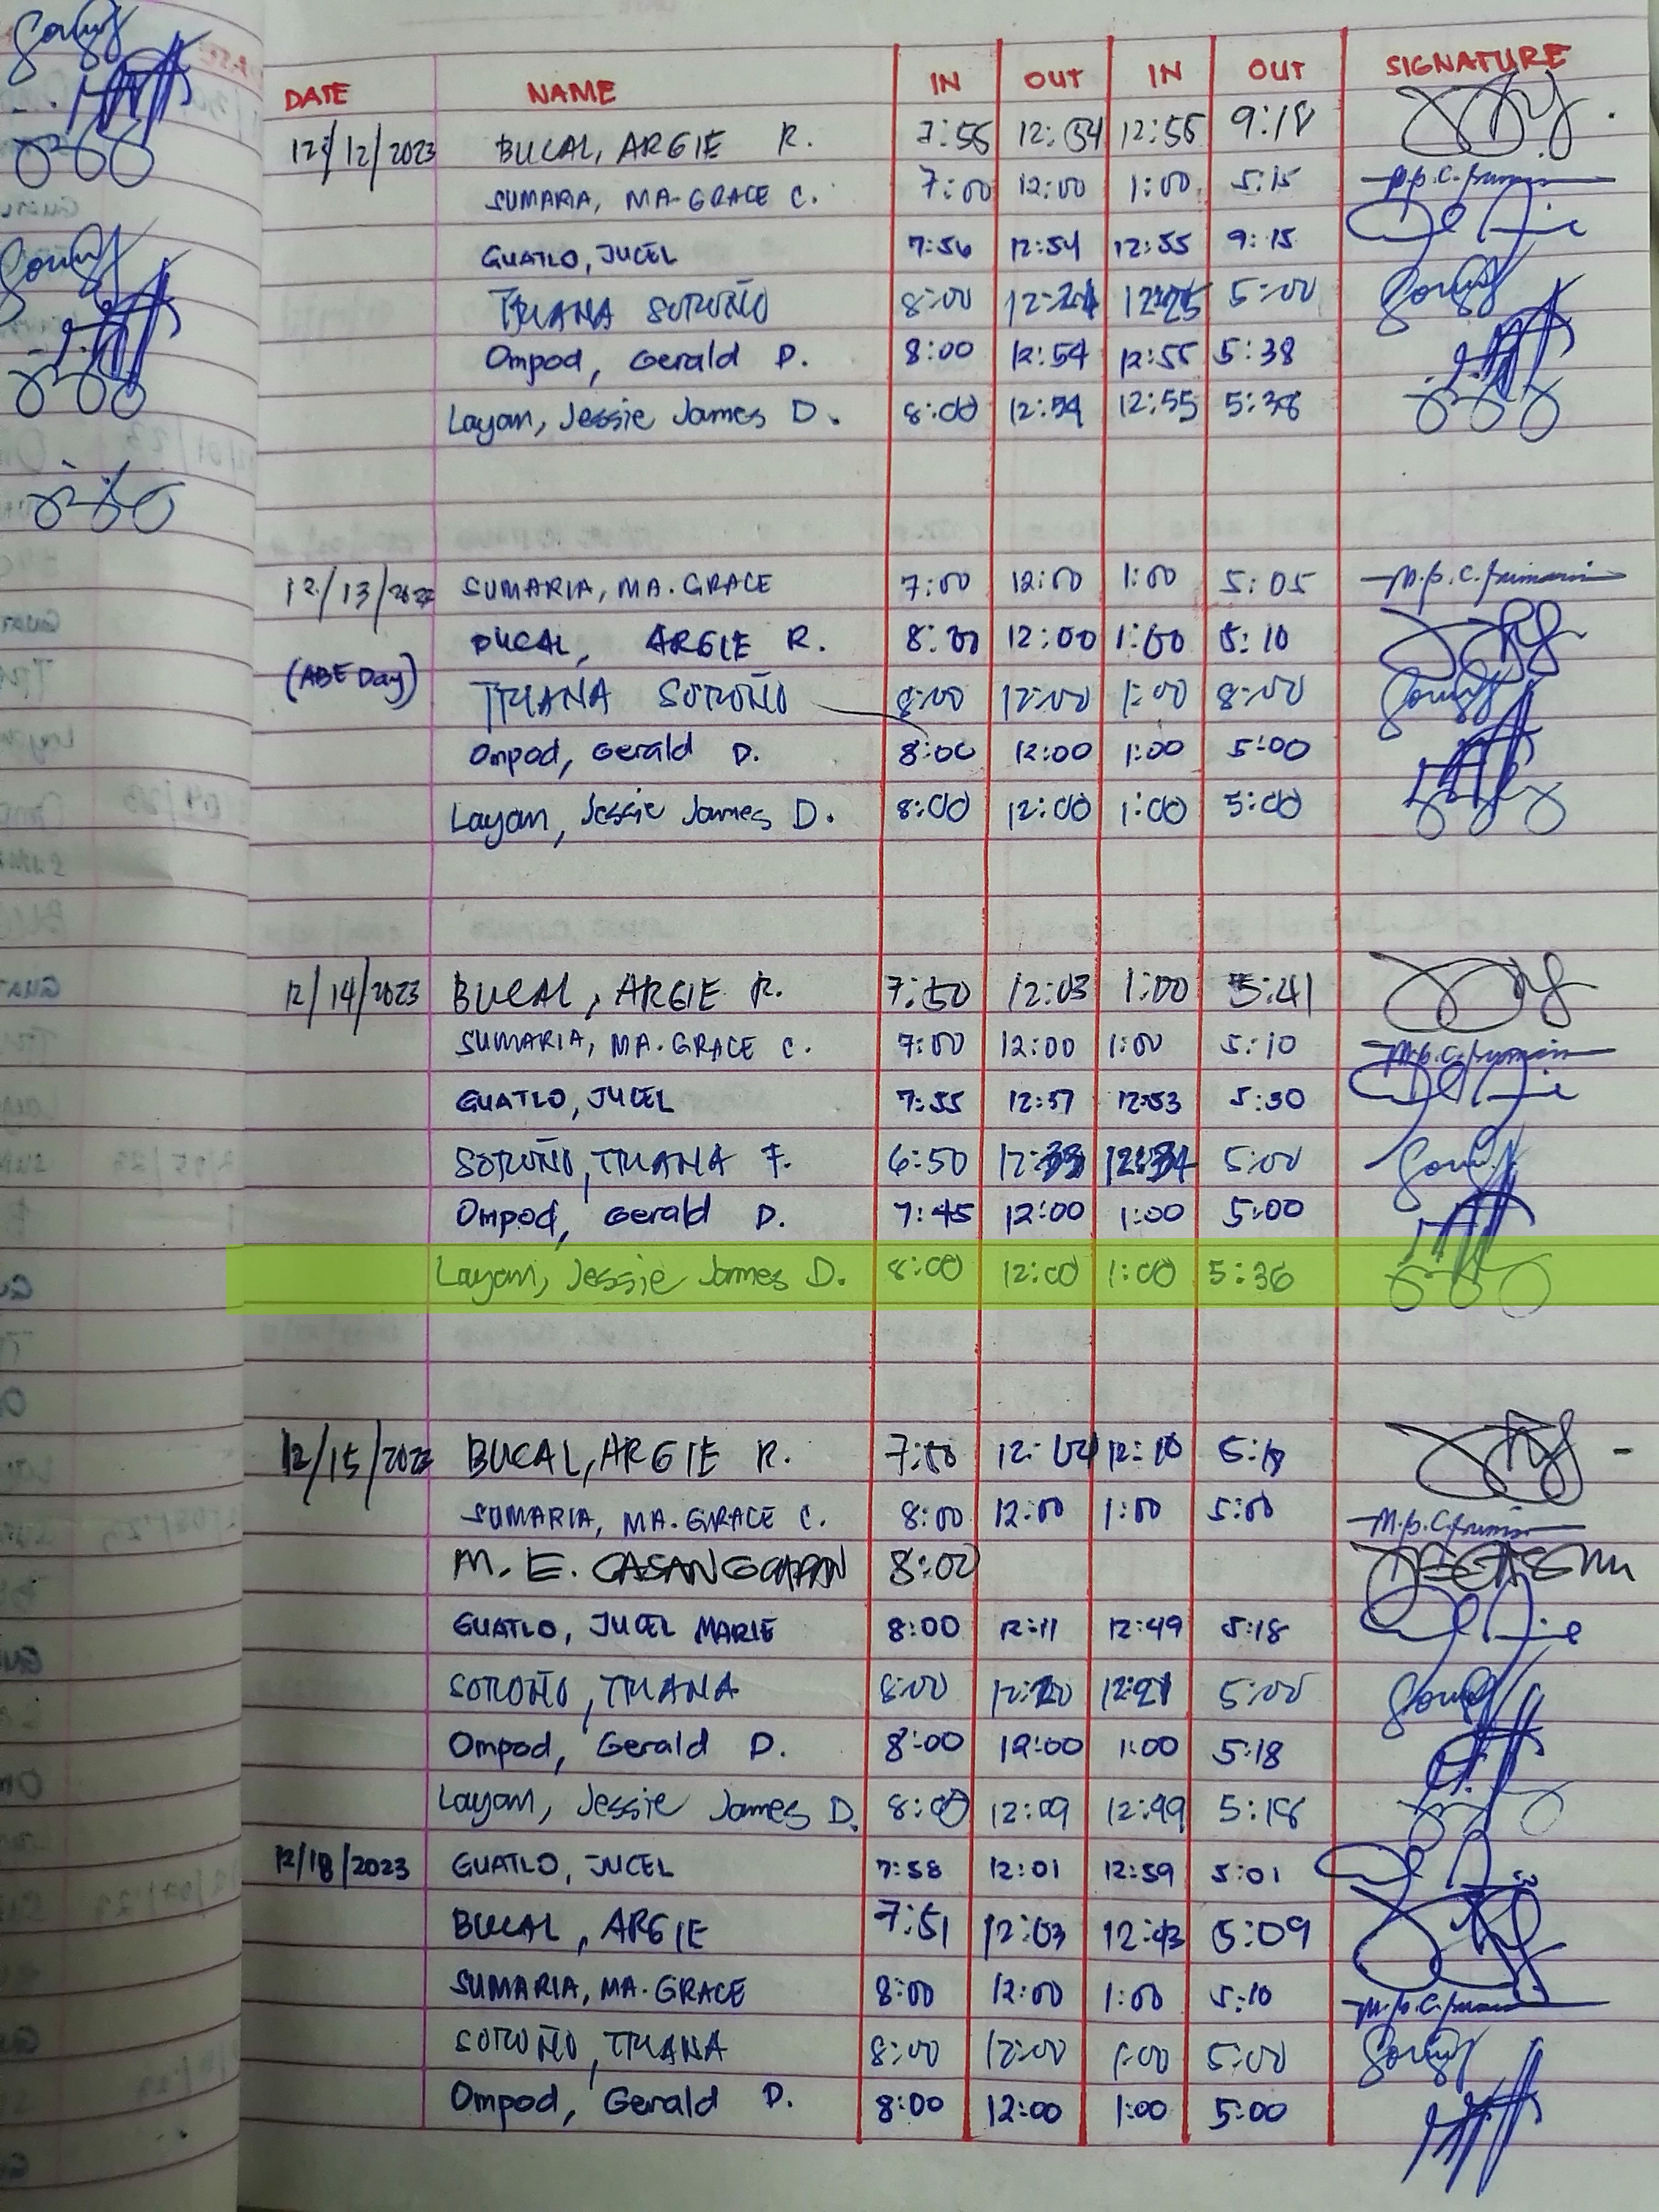 DATE NAME IN OUT IN OUT SIGNATURE
12/12/2023 BUCAL, ARGIE R. 7:55 12:54 12:55 9:18
SUMARIA, MA. GRACE C. 7:00 12:00 1:00 5:15
GUATLO, JUCEL 7:56 12:54 12:55 9:15
TRIANA SOROÑO 8:00 5:00
Ompod, Gerald D. 8:00 12:54 12:55 5:38
Layan, Jessie James D. 8:00 12:54 12:55 5:38
12/13/2023 SUMARIA, MA. GRACE 7:00 12:00 1:00 5:05
BUCAL, ARGIE R. 8:00 12:00 1:00 5:10
(ABE Day) TRIANA SOROÑO 8:00 12:00 1:00 8:00
Ompod, Gerald D. 8:00 12:00 1:00 5:00
Layan, Jessie James D. 8:00 12:00 1:00 5:00
12/14/2023 BUCAL, ARGIE R. 7:50 12:03 1:00 5:41
SUMARIA, MA. GRACE C. 7:00 12:00 1:00 5:10
GUATLO, JUCEL 7:55 12:53 5:30
SOROÑO, TRIANA F. 6:50 12:33 12:34 5:00
Ompod, Gerald D. 7:45 12:00 1:00 5:00
Layan, Jessie James D. 8:00 12:00 1:00 5:36
12/15/2023 BUCAL, ARGIE R. 12:10
SUMARIA, MA. GRACE C. 8:00 12:00 1:00 5:00
M. E. CASANGCAPAN 8:00
GUATLO, JUCEL MARIE 8:00 12:11 12:49 5:18
SOROÑO, TRIANA 8:00 12:20 12:21 5:00
Ompod, Gerald D. 8:00 12:00 1:00 5:18
Layan, Jessie James D. 8:00 12:09 12:49 5:18
12/18/2023 GUATLO, JUCEL 7:58 12:01 12:59 5:01
BUCAL, ARGIE 7:51 12:03 12:43 5:09
SUMARIA, MA. GRACE 8:00 12:00 1:00 5:10
SOROÑO, TRIANA 8:00 12:00 1:00 5:00
Ompod, Gerald D. 8:00 12:00 1:00 5:00